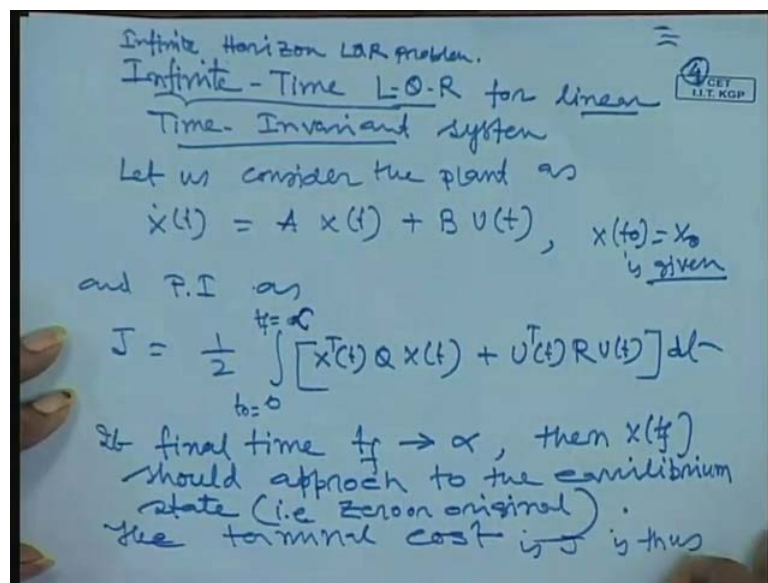 Infinite Horizon LQR problem.
Infinite - Time L-Q-R for linear
4
CET
I.I.T. KGP
Time- Invariant system
Let us consider the plant as
ẋ(t) = A x(t) + B U(t), x(t0) = x0
is given
and P.I as
tf = ∝
J = 1/2 ∫ [x^T(t) Q x(t) + U^T(t) R U(t)] dt
t0 = 0
If final time tf → ∝, then x(tf)
should approch to the equilibrium
state (i.e zero or original).
The terminal cost is J is thus